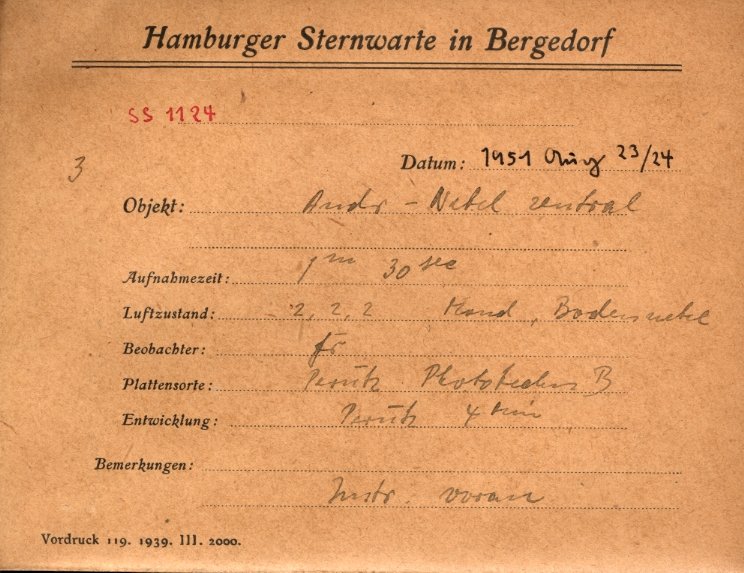 Hamburger Sternwarte in Bergedorf
SS 1124
3
Datum: 1951 Aug 23/24
Objekt: Andr - Nebel zentral
Aufnahmezeit: 1m 30sec
Luftzustand: 2, 2, 2 Mond, Bodennebel
Beobachter: fr
Plattensorte: Perutz B
Entwicklung: Perutz 4 min
Bemerkungen:
Instr. voran
Vordruck 119. 1939. III. 2000.